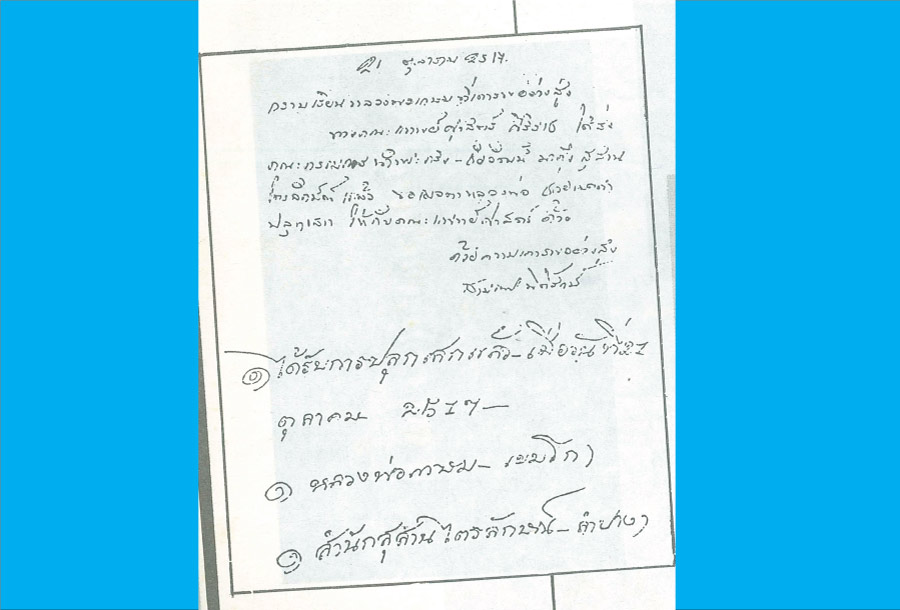 ๒๑ ตุลาคม ๒๕๑๗.
กราบเรียน หลวงพ่อเกษม ที่เคารพอย่างสูง
ทางคณะแพทย์ศาสตร์ ศิริราช ได้ส่ง
มาถึง สุสาน
ไตรลักษณ์ แล้ว ขอเมตตาหลวงพ่อ
ปลุกเสก ให้กับคณะแพทย์ศาสตร์ ด้วย
ด้วยความเคารพอย่างสูง
๑) ได้รับการปลุกเสกแล้ว – เมื่อวันที่ ๒๑
ตุลาคม ๒๕๑๗ –
๑) หลวงพ่อเกษม – เขมโก)
๑) สำนักสุสานไตรลักษณ์ – ลำปาง)